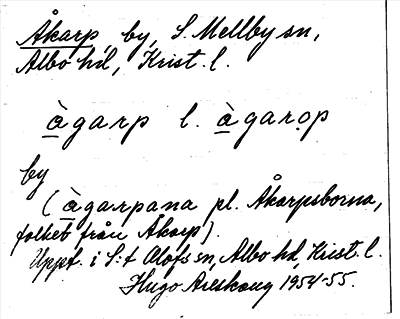 Åkarp, by, S. Mellby sn,
Albo hd, Krist. l.
àgarp l. àgarop
by
(àgarpana pl. Åkarpsborna,
folket från Åkarp).
Uppt. i S:t Olofs sn, Albo hd Krist. l.
Hugo Areskoug 1954-55.